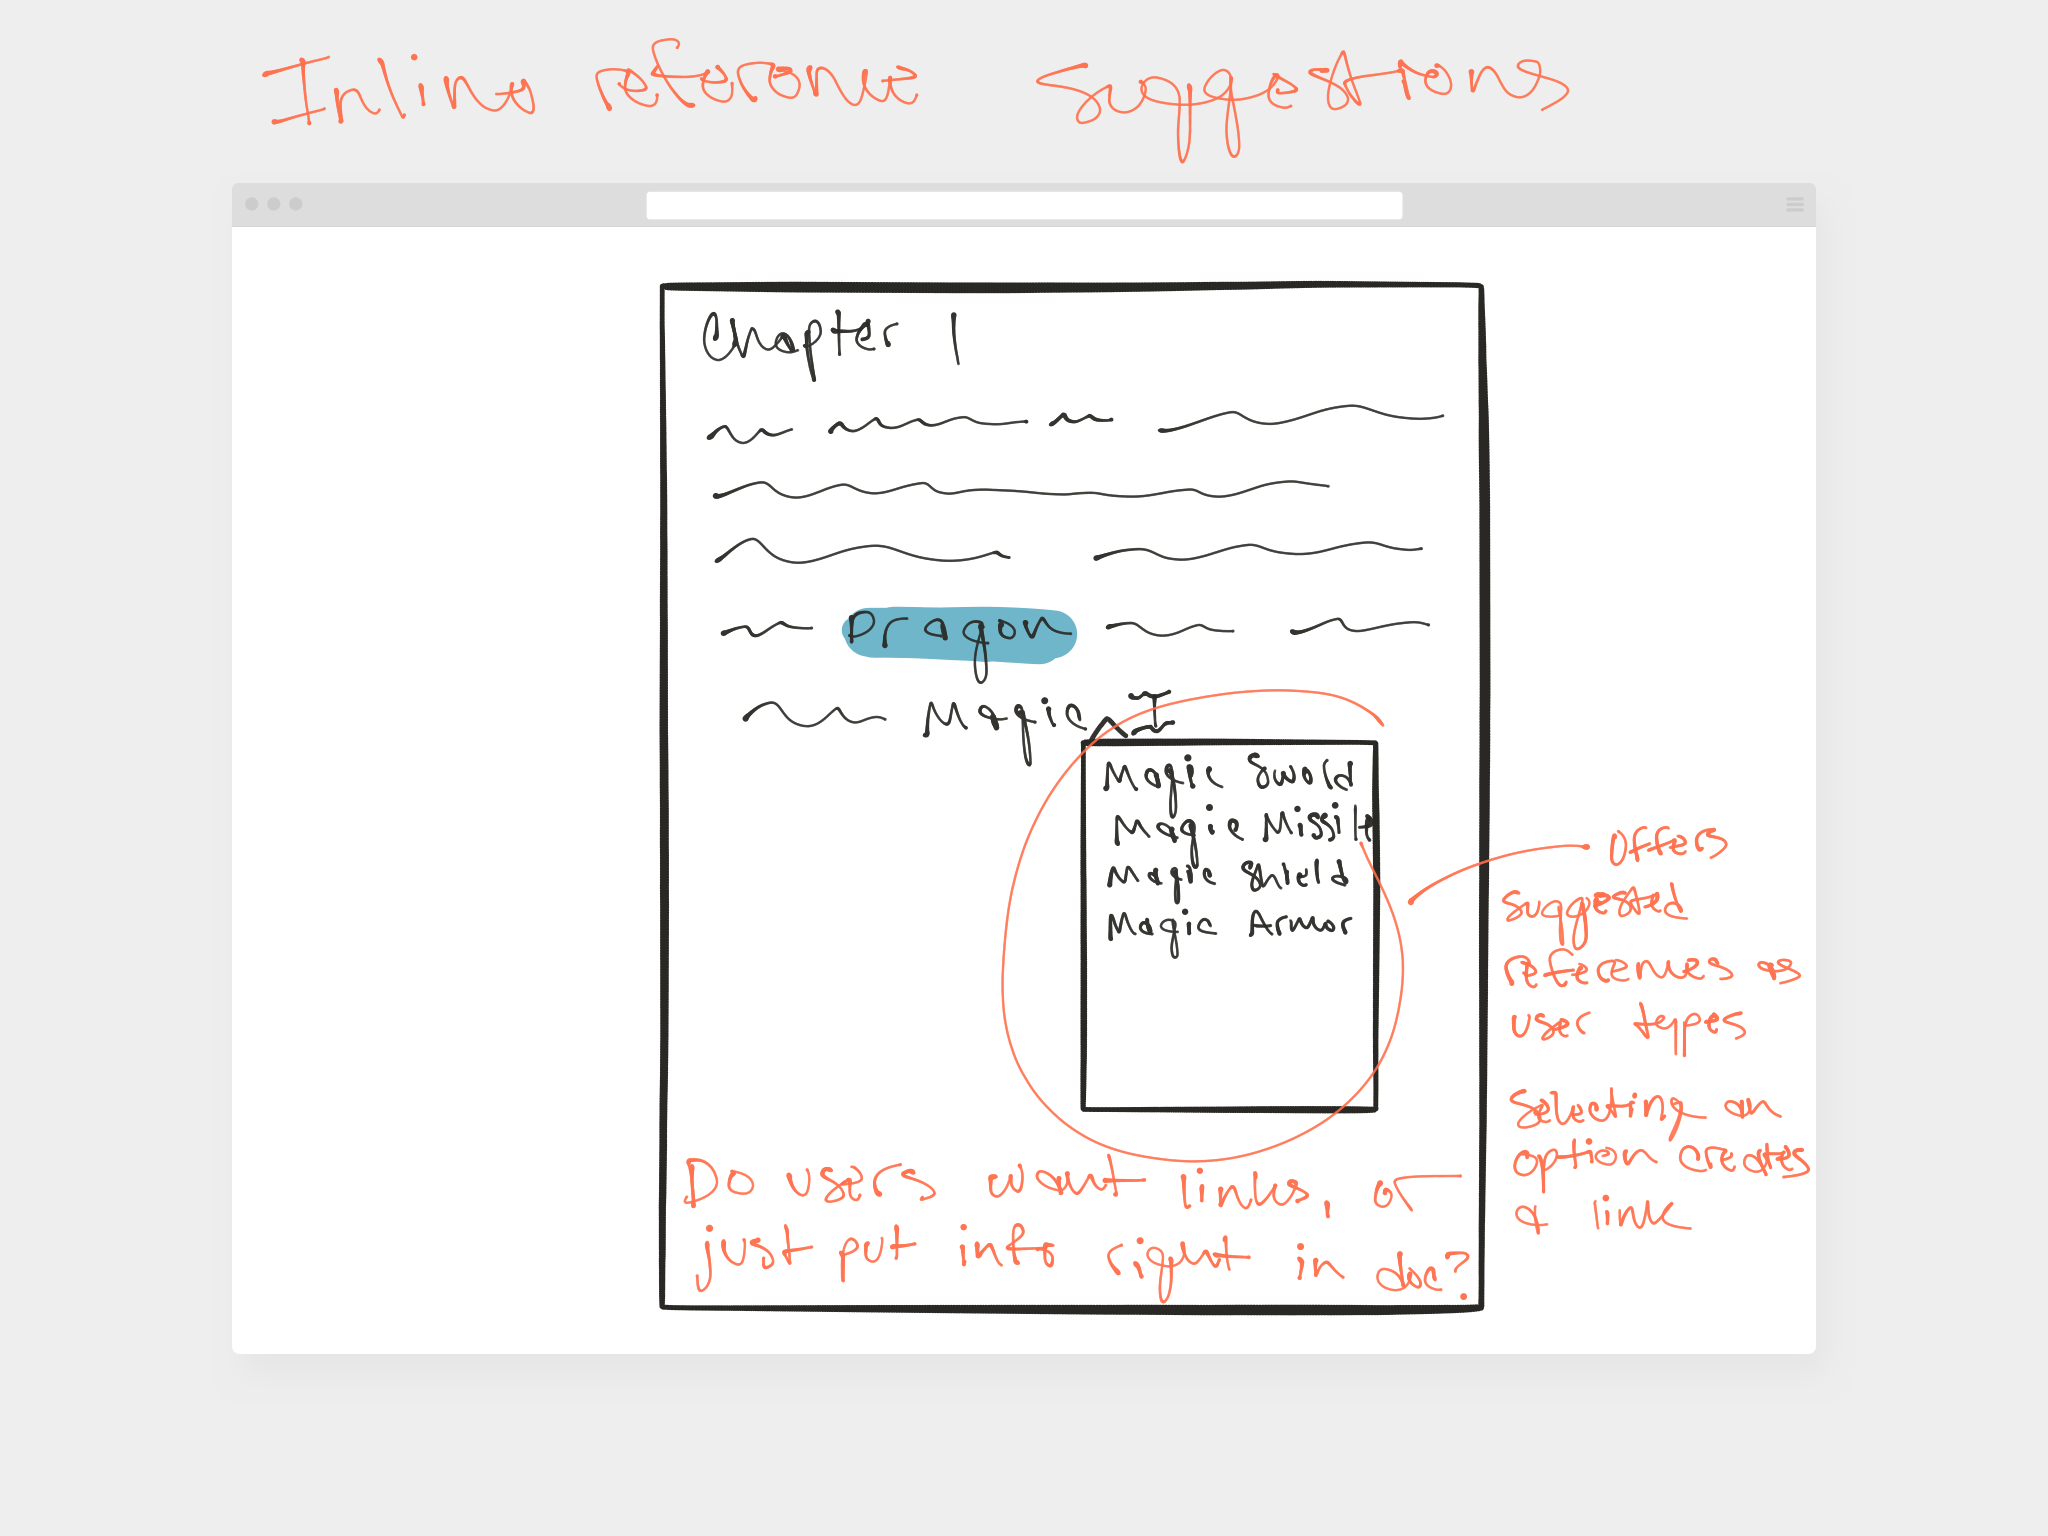 Inline reference suggestions
Chapter 1
Dragon
Magic
Magic Sword
Magic Missile
Magic Shield
Magic Armor
Offers
suggested
references as
user types
Selecting an
option creates
a link
Do users want links, or
just put info right in doc?